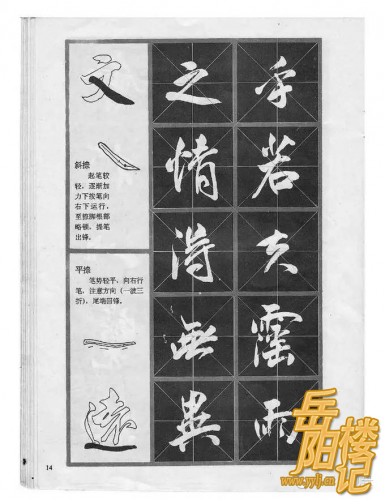 文
斜捺
起笔较
轻，逐渐加
力下按笔向
右下运行，
至捺脚根部
略顿，提笔
出锋。
平捺
笔势轻平，向右行
笔，注意方向（一波三
折），尾端回锋。
遠
之情得無異
乎若夫霪雨
14
岳阳楼记
www.yylj.cn